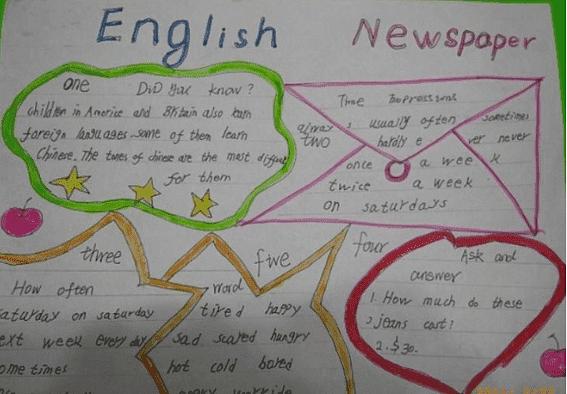 English Newspaper
one DiD you know?
children in America and Britain also learn
foreign languages some of them learn
Chinese. The tones of chinese are the most
for them
Time Expressions
always, usually often sometimes
TWO hardly ever never
once a week
twice a week
on saturdays
three
How often
saturday on saturday
next week every day
sometimes
five
word
tired happy
sad scared hungry
hot cold bored
four
Ask and
answer
1. How much do these
jeans cost?
2. $30.